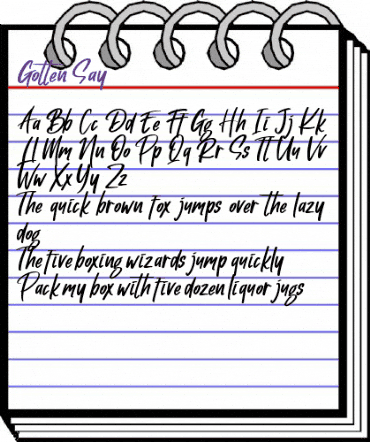 Gotten Say
Aa Bb Cc Dd Ee Ff Gg Hh Ii Jj Kk
Ll Mm Nn Oo Pp Qq Rr Ss Tt Uu Vv
Ww Xx Yy Zz
The quick brown fox jumps over the lazy
dog
The five boxing wizards jump quickly
Pack my box with five dozen liquor jugs